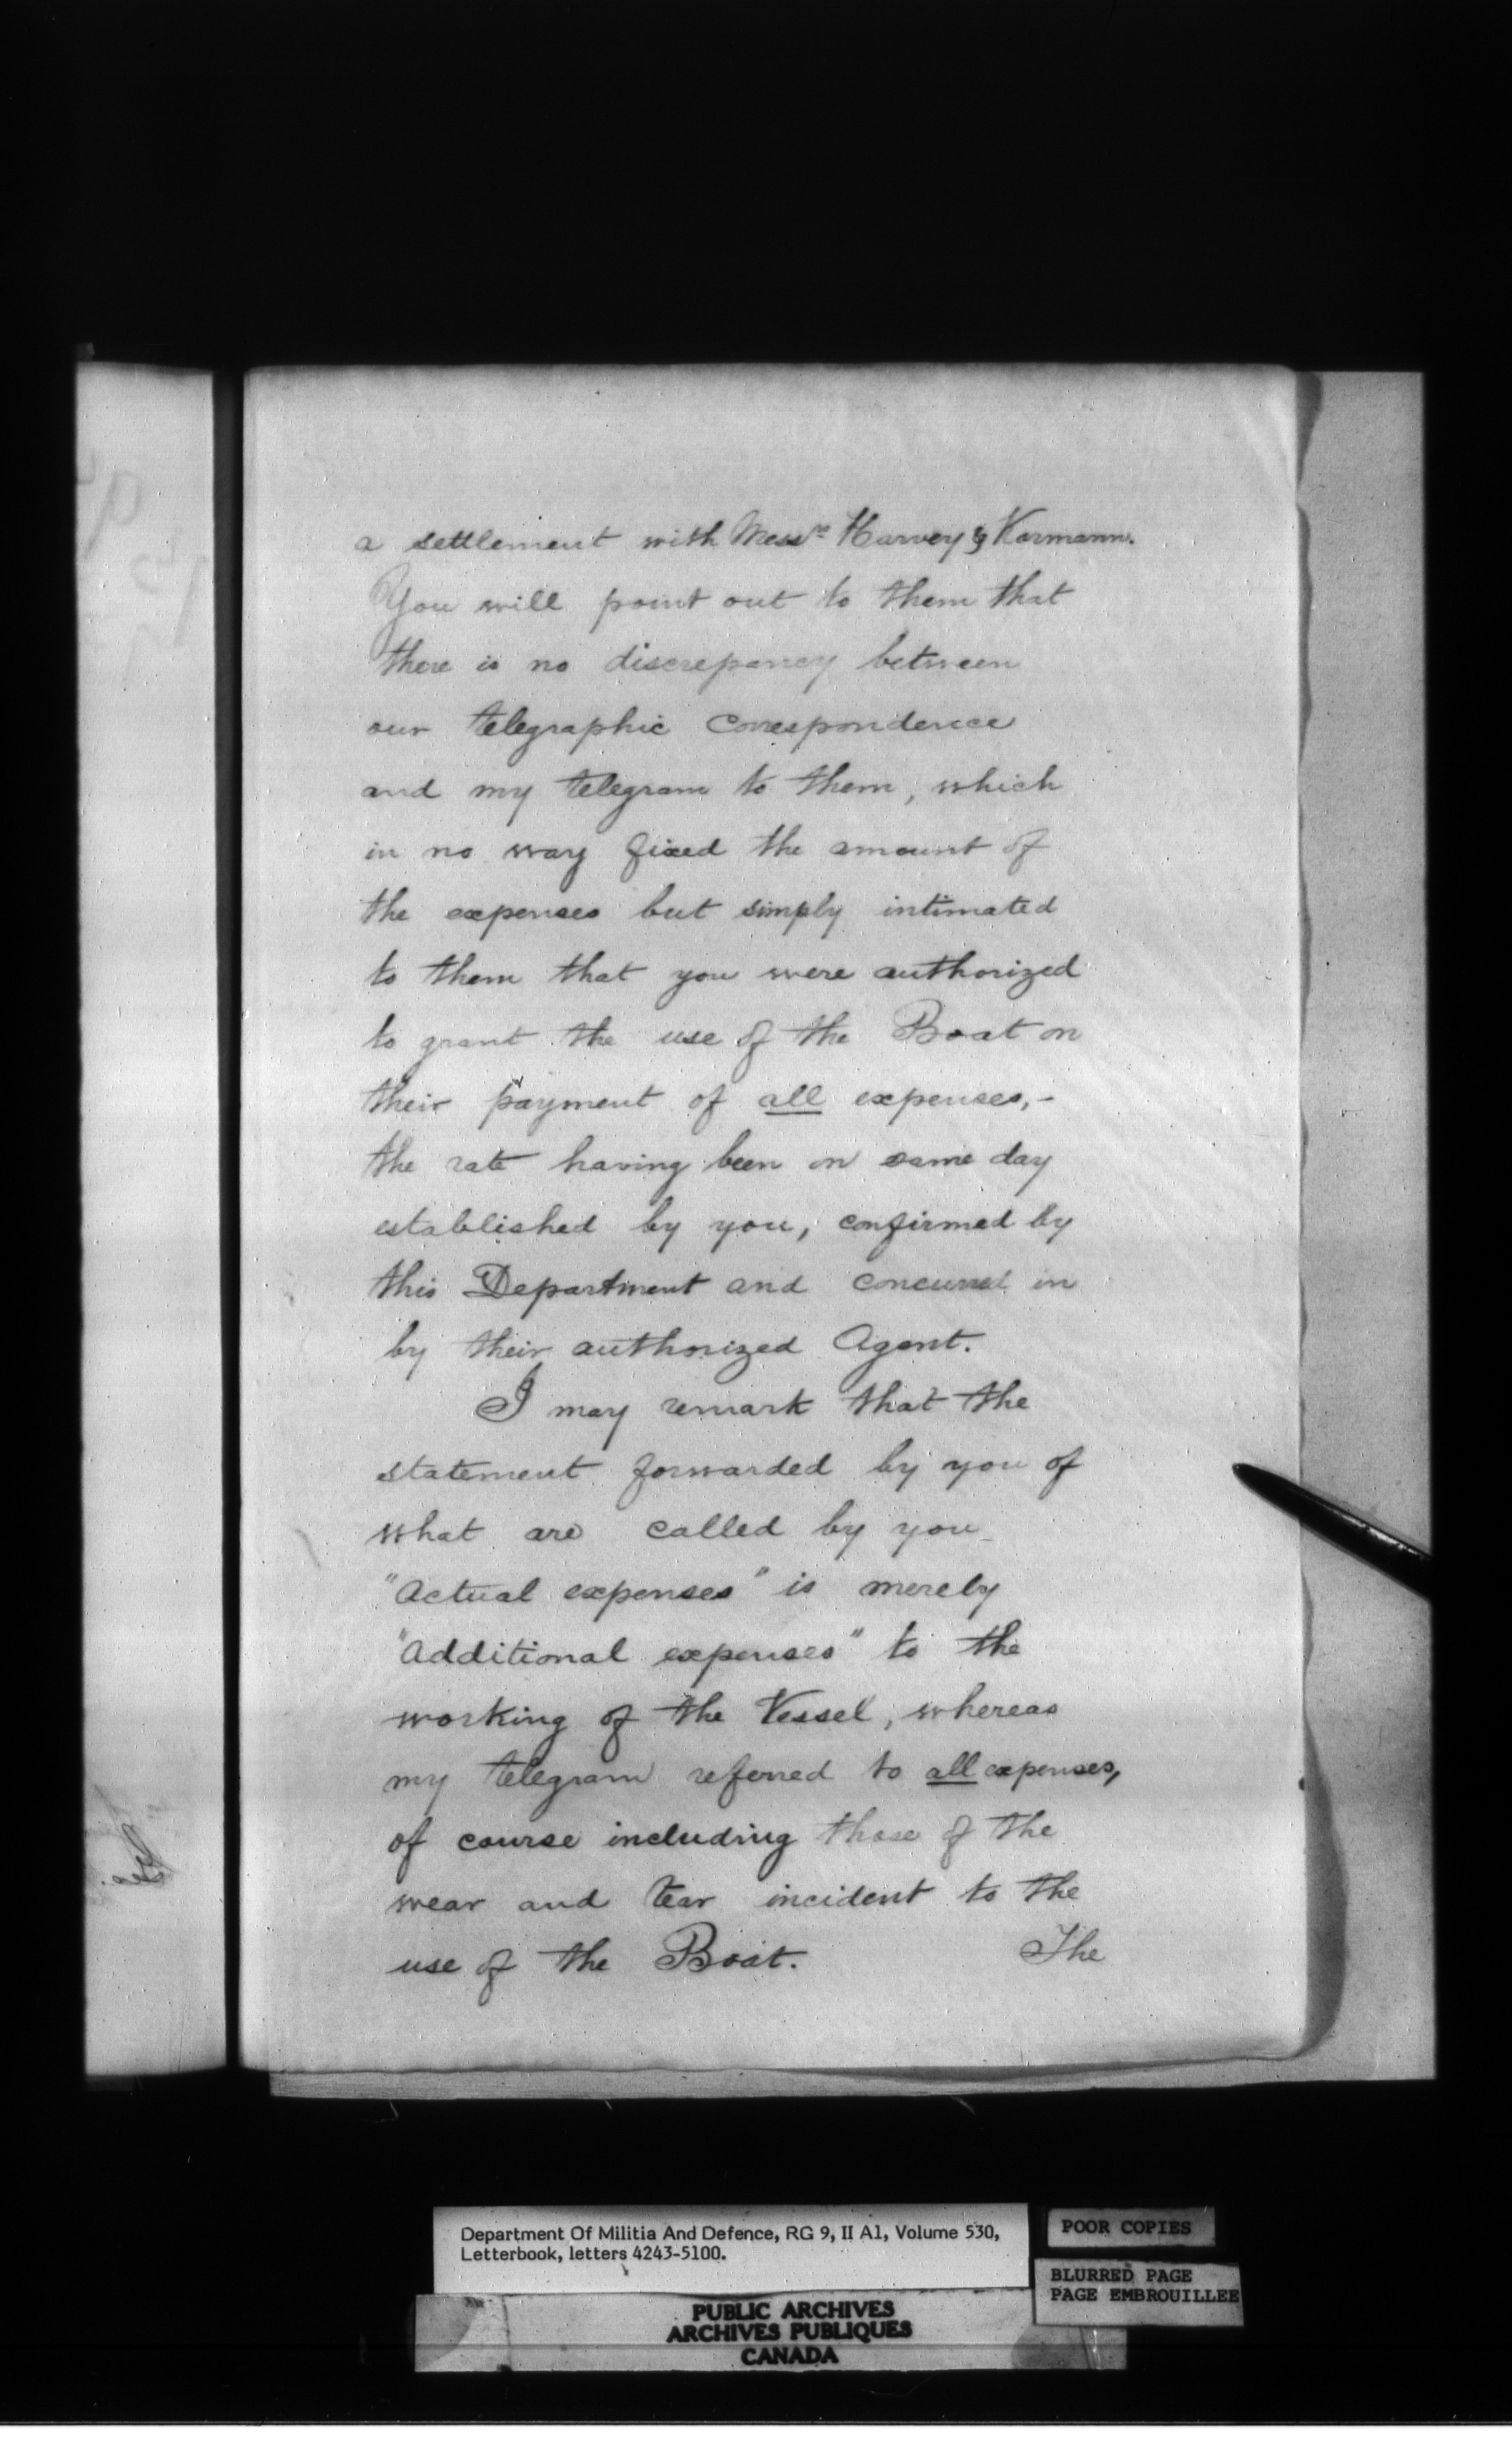 a settlement with Messrs Harvey & Kormann.
You will point out to them that
there is no discrepancy between
our telegraphic correspondence
and my telegram to them, which
in no way fixed the amount of
the expenses but simply intimated
to them that you were authorized
to grant the use of the Boat on
their payment of all expenses,-
the rate having been on same day
established by you, confirmed by
this Department and concurred in
by their authorized Agent.
I may remark that the
statement forwarded by you of
what are called by you
"Actual expenses" is merely
"Additional expenses" to the
working of the Vessel, whereas
my telegram referred to all expenses,
of course including those of the
wear and tear incident to the
use of the Boat. The
Department Of Militia And Defence, RG 9, II A1, Volume 530,
Letterbook, letters 4243-5100.
POOR COPIES
BLURRED PAGE
PAGE EMBROUILLEE
PUBLIC ARCHIVES
ARCHIVES PUBLIQUES
CANADA